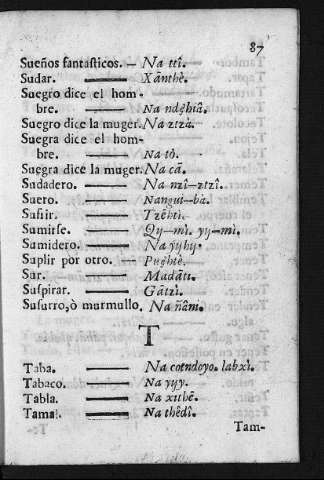 87
Sueños fantasticos. — Na ttî.
Sudar. — Xânthè.
Suegro dice el hom-
bre. — Na ndęhiâ.
Suegro dice la muger. Na ztzà.
Suegra dice el hom-
bre. — Na tò.
Suegra dice la muger. Na câ.
Sudadero. — Na nzî—ztzî.
Suero. — Nangui—ba.
Sufrir. — Tzêhtì.
Sumirse. — Qy—mì. yy—mì.
Sumidero. — Na ÿyhy.
Suplir por otro. — Puęhtè.
Sur. — Madâti.
Suspirar. — Gâtzì.
Susurro, ò murmullo. Na ñâm.
T
Taba. — Na cotndoyo. labxì.
Tabaco. — Na yyy.
Tabla. — Na xithê.
Tamal. — Na thêdî.
Tam-